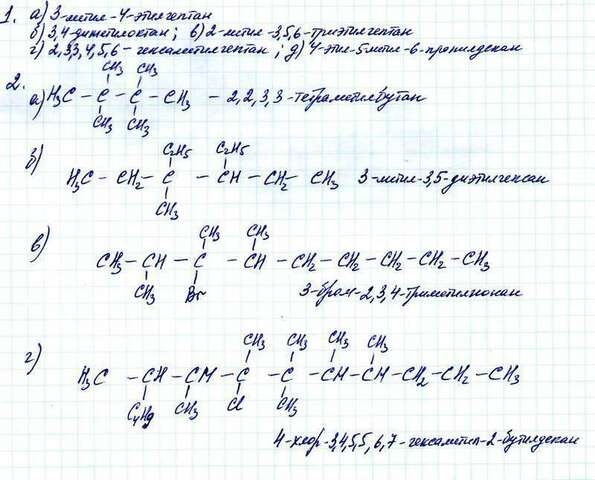 1. а) 3-метил-4-этилгептан
б) 3,4-диметилоктан; в) 2-метил-3,5,6-триэтилгептан
г) 2,3,3,4,5,6-гексаметилгептан; д) 4-этил-5метил-6-пропилдекан
2.
CH₃ CH₃
а) H₃C - C - C - CH₃ - 2,2,3,3-тетраметилбутан
CH₃ CH₃
C₂H₅ C₂H₅
б) H₃C - CH₂ - C - CH - CH₂ - CH₃ 3-метил-3,5-диэтилгексан
CH₃
CH₃ CH₃
в) CH₃ - CH - C - CH - CH₂ - CH₂ - CH₂ - CH₂ - CH₃
CH₃ Br
3-бром-2,3,4-триметилнонан
CH₃ CH₃ CH₃ CH₃
г) H₃C - CH - CH - C - C - CH - CH - CH₂ - CH₂ - CH₃
C₄H₉ CH₃ Cl CH₃
4-хлор-3,4,5,5,6,7-гексаметил-2-бутилдекан